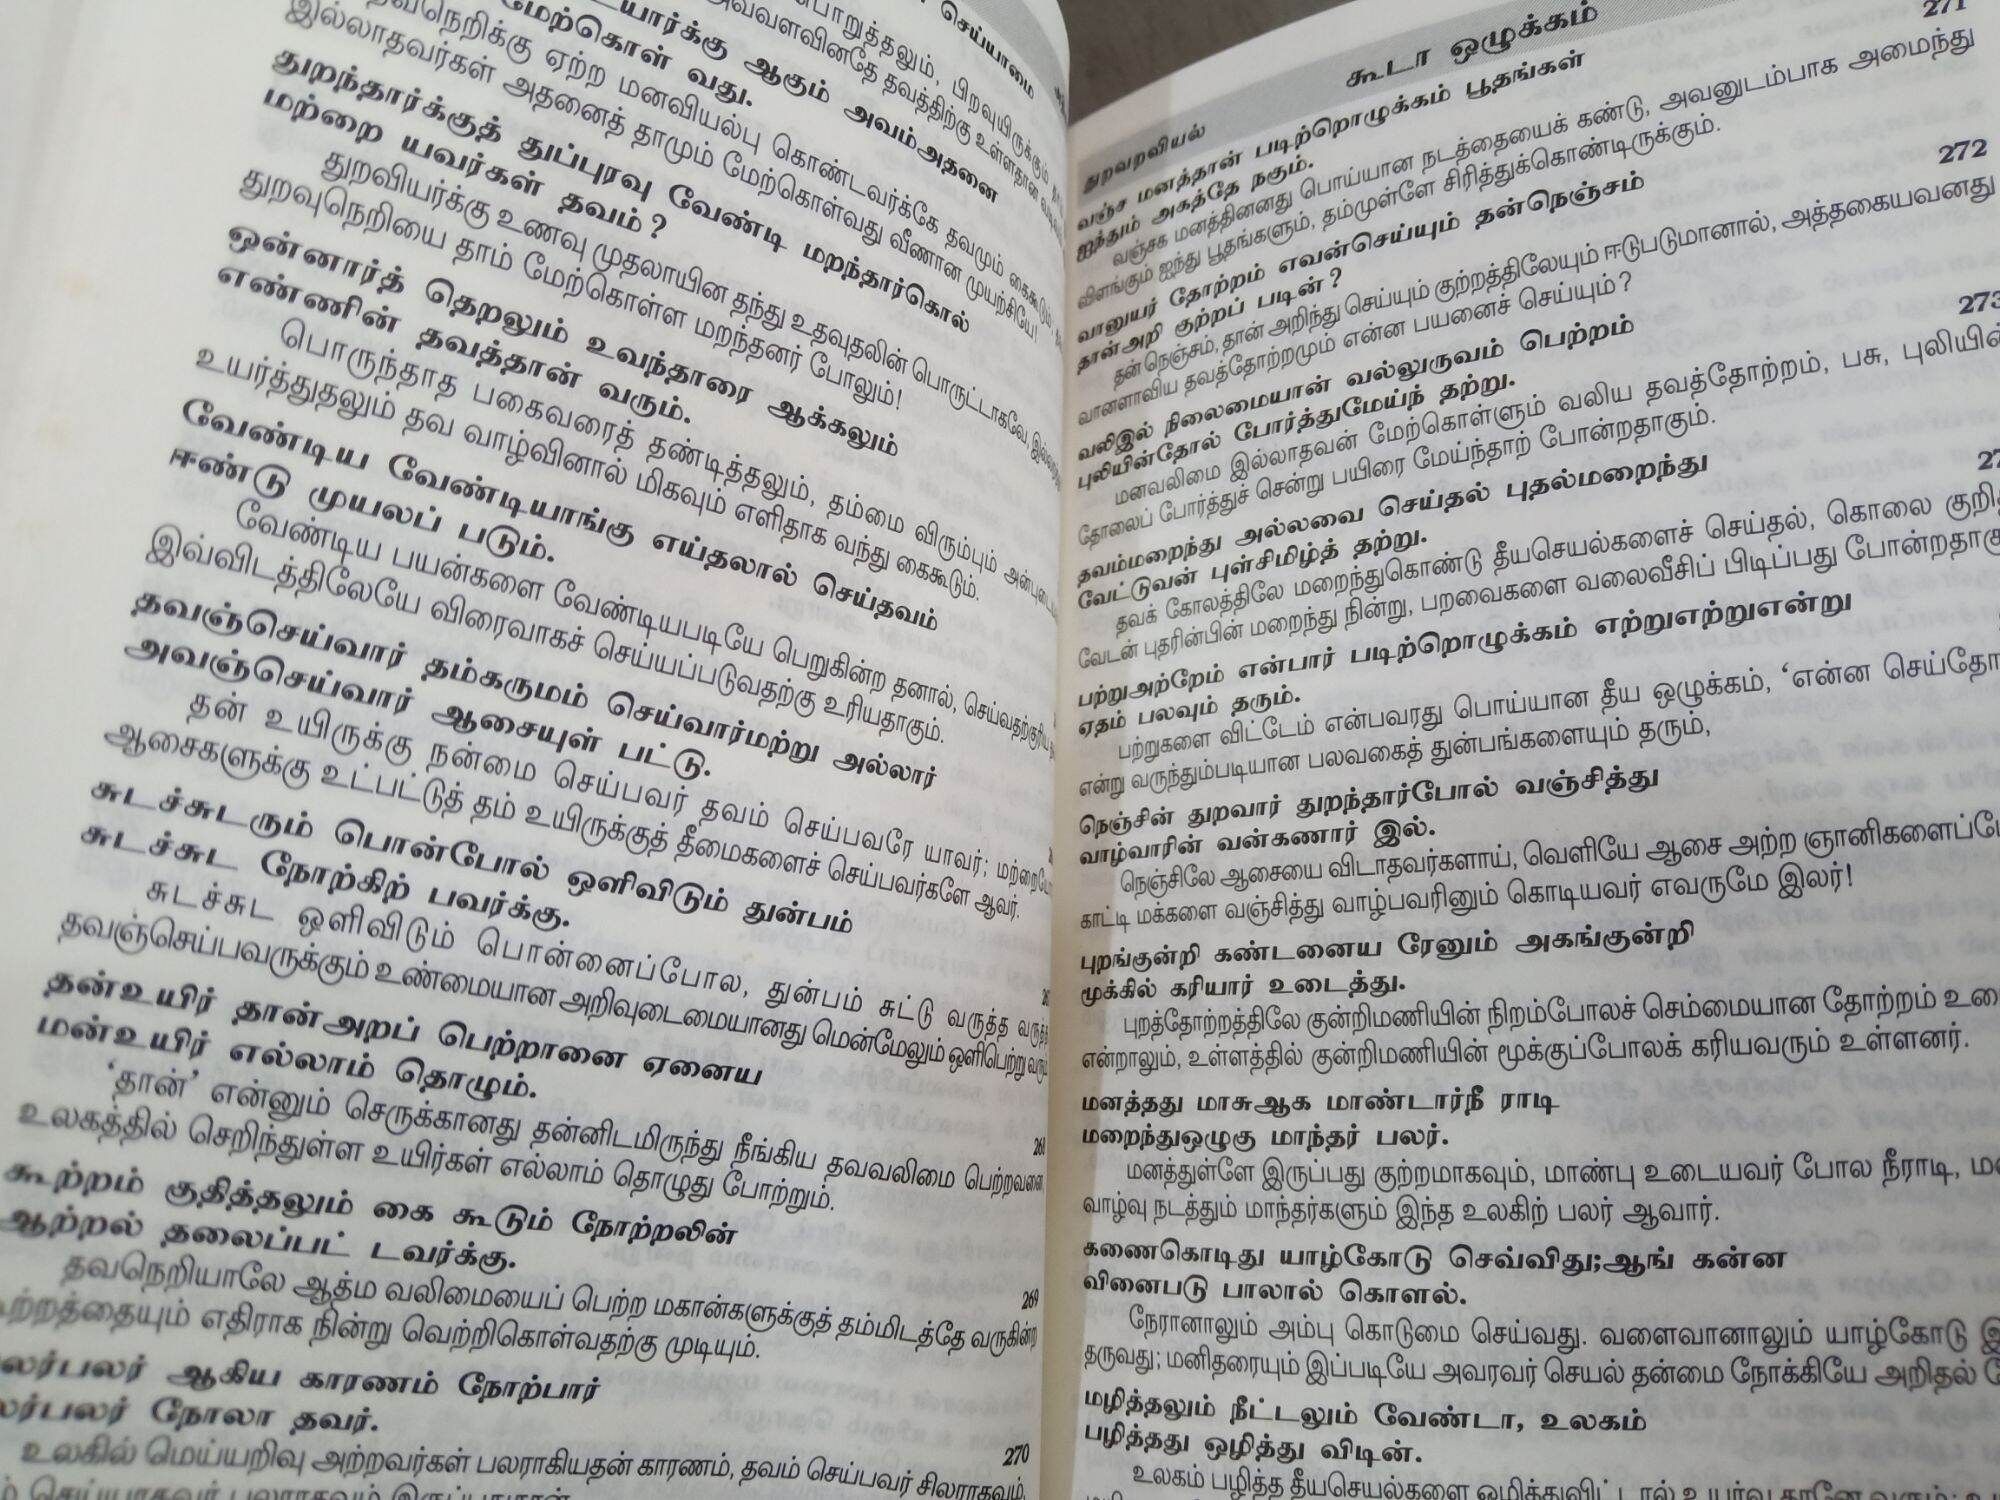 செய்யாமை
பொறுத்தலும், பிறவுயிருக்கும்
அவ்வளவினதே தவத்திற்கு உள்ளதான
ஆகும் அவம்அதனை
மேற்கொள் வது.
தவநெறிக்கு ஏற்ற மனவியல்பு கொண்டவர்க்கே தவமும் கைகூடும்;
இல்லாதவர்கள் அதனைத் தாமும் மேற்கொள்வது வீணான முயற்சியே!
துறந்தார்க்குத் துப்புரவு வேண்டி மறந்தார்கொல்
மற்றை யவர்கள் தவம்?
துறவியர்க்கு உணவு முதலாயின தந்து உதவுதலின் பொருட்டாகவே,
துறவுநெறியை தாம் மேற்கொள்ள மறந்தனர் போலும்!
ஒன்னார்த் தெறலும் உவந்தாரை ஆக்கலும்
எண்ணின் தவத்தான் வரும்.
பொருந்தாத பகைவரைத் தண்டித்தலும், தம்மை விரும்பும்
உயர்த்துதலும் தவ வாழ்வினால் மிகவும் எளிதாக வந்து கைகூடும்.
வேண்டிய வேண்டியாங்கு எய்தலால் செய்தவம்
ஈண்டு முயலப் படும்.
வேண்டிய பயன்களை வேண்டியபடியே பெறுகின்ற தனால், செய்வதற்குரிய
இவ்விடத்திலேயே விரைவாகச் செய்யப்படுவதற்கு உரியதாகும்.
தவஞ்செய்வார் தம்கருமம் செய்வார்மற்று அல்லார்
அவஞ்செய்வார் ஆசையுள் பட்டு.
தன் உயிருக்கு நன்மை செய்பவர் தவம் செய்பவரே யாவர்;
ஆசைகளுக்கு உட்பட்டுத் தம் உயிருக்குத் தீமைகளைச் செய்பவர்களே ஆவர்.
சுடச்சுடரும் பொன்போல் ஒளிவிடும் துன்பம்
சுடச்சுட நோற்கிற் பவர்க்கு.
சுடச்சுட ஒளிவிடும் பொன்னைப்போல, துன்பம் சுட்டு வருத்த வருத்த
தவஞ்செய்பவருக்கும் உண்மையான அறிவுடைமையானது மென்மேலும் ஒளிபெற்று வரும்
தன்உயிர் தான்அறப் பெற்றானை ஏனைய
மன்உயிர் எல்லாம் தொழும். 268
'தான்' என்னும் செருக்கானது தன்னிடமிருந்து நீங்கிய தவவலிமை பெற்றவனை
உலகத்தில் செறிந்துள்ள உயிர்கள் எல்லாம் தொழுது போற்றும்.
கூற்றம் குதித்தலும் கை கூடும் நோற்றலின்
ஆற்றல் தலைப்பட் டவர்க்கு. 269
தவநெறியாலே ஆத்ம வலிமையைப் பெற்ற மகான்களுக்குத் தம்மிடத்தே வருகின்ற
எதிராக நின்று வெற்றிகொள்வதற்கு முடியும்.
ஆகிய காரணம் நோற்பார்
நோலா தவர். 270
உலகில் மெய்யறிவு அற்றவர்கள் பலராகியதன் காரணம், தவம் செய்பவர் சிலராகவும்,
துறவறவியல் கூடா ஒழுக்கம்
வஞ்ச மனத்தான் படிற்றொழுக்கம் பூதங்கள்
ஐந்தும் அகத்தே நகும். 271
வஞ்சக மனத்தினனது பொய்யான நடத்தையைக் கண்டு, அவனுடம்பாக அமைந்து
விளங்கும் ஐந்து பூதங்களும், தம்முள்ளே சிரித்துக்கொண்டிருக்கும்.
வானுயர் தோற்றம் எவன்செய்யும் தன்நெஞ்சம்
தான்அறி குற்றப் படின்? 272
தன்நெஞ்சம், தான் அறிந்து செய்யும் குற்றத்திலேயும் ஈடுபடுமானால், அத்தகையவனது
வானளாவிய தவத்தோற்றமும் என்ன பயனைச் செய்யும்?
வலிஇல் நிலைமையான் வல்லுருவம் பெற்றம்
புலியின்தோல் போர்த்துமேய்ந் தற்று. 273
மனவலிமை இல்லாதவன் மேற்கொள்ளும் வலிய தவத்தோற்றம், பசு, புலியின்
தோலைப் போர்த்துச் சென்று பயிரை மேய்ந்தாற் போன்றதாகும்.
தவம்மறைந்து அல்லவை செய்தல் புதல்மறைந்து
வேட்டுவன் புள்சிமிழ்த் தற்று.
தவக் கோலத்திலே மறைந்துகொண்டு தீயசெயல்களைச் செய்தல், கொலை
வேடன் புதரின்பின் மறைந்து நின்று, பறவைகளை வலைவீசிப் பிடிப்பது
பற்றுஅற்றேம் என்பார் படிற்றொழுக்கம் எற்றுஎற்றுஎன்று
ஏதம் பலவும் தரும்.
பற்றுகளை விட்டேம் என்பவரது பொய்யான தீய ஒழுக்கம், 'என்ன
என்று வருந்தும்படியான பலவகைத் துன்பங்களையும் தரும்,
நெஞ்சின் துறவார் துறந்தார்போல் வஞ்சித்து
வாழ்வாரின் வன்கணார் இல்.
நெஞ்சிலே ஆசையை விடாதவர்களாய், வெளியே ஆசை அற்ற
காட்டி மக்களை வஞ்சித்து வாழ்பவரினும் கொடியவர் எவருமே இலர்!
புறங்குன்றி கண்டனைய ரேனும் அகங்குன்றி
மூக்கில் கரியார் உடைத்து.
புறத்தோற்றத்திலே குன்றிமணியின் நிறம்போலச் செம்மையான தோற்றம்
என்றாலும், உள்ளத்தில் குன்றிமணியின் மூக்குப்போலக் கரியவரும் உள்ளனர்.
மனத்தது மாசுஆக மாண்டார்நீ ராடி
மறைந்துஒழுகு மாந்தர் பலர்.
மனத்துள்ளே இருப்பது குற்றமாகவும், மாண்பு உடையவர் போல நீராடி,
வாழ்வு நடத்தும் மாந்தர்களும் இந்த உலகிற் பலர் ஆவார்.
கணைகொடிது யாழ்கோடு செவ்விது;ஆங் கன்ன
வினைபடு பாலால் கொளல்.
நேரானாலும் அம்பு கொடுமை செய்வது. வளைவானாலும் யாழ்கோடு
தருவது; மனிதரையும் இப்படியே அவரவர் செயல் தன்மை நோக்கியே அறிதல்
மழித்தலும் நீட்டலும் வேண்டா, உலகம்
பழித்தது ஒழித்து விடின்.
உலகம் பழித்த தீயசெயல்களை ஒழித்துவிட்டால்